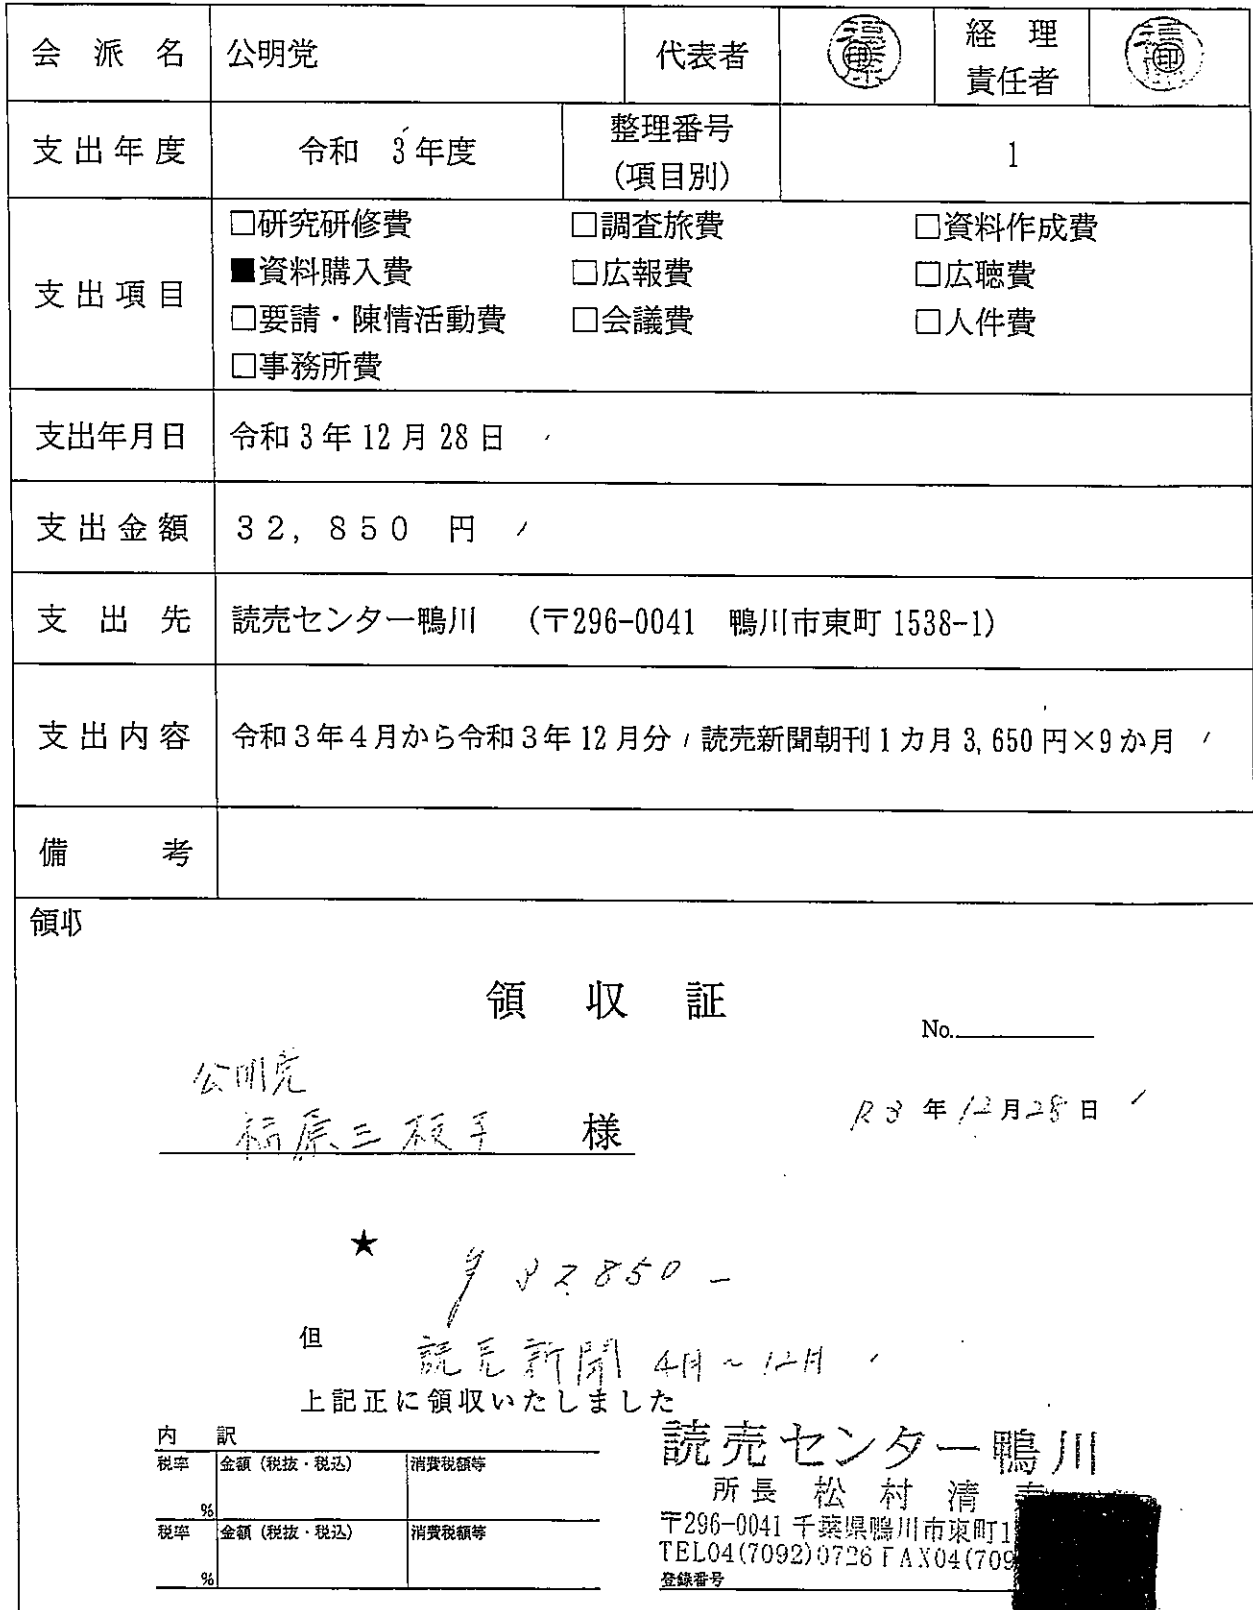 会派名 公明党 代表者 印 経理責任者 印
支出年度 令和 3年度 整理番号(項目別) 1
支出項目 □研究研修費 □調査旅費 □資料作成費
■資料購入費 □広報費 □広聴費
□要請・陳情活動費 □会議費 □人件費
□事務所費
支出年月日 令和3年12月28日
支出金額 32,850 円
支出先 読売センター鴨川 (〒296-0041 鴨川市東町1538-1)
支出内容 令和3年4月から令和3年12月分 読売新聞朝刊1カ月3,650円×9か月
備考
領収
領収証
No.
公明党
福原三枝子 様
R3年12月28日
★ ¥32,850-
但 読売新聞 4月~12月
上記正に領収いたしました
内訳
税率 金額(税抜・税込) 消費税額等
%
税率 金額(税抜・税込) 消費税額等
%
読売センター鴨川
所長 松村清
〒296-0041 千葉県鴨川市東町1
TEL04(7092)0726 FAX04(709
登録番号